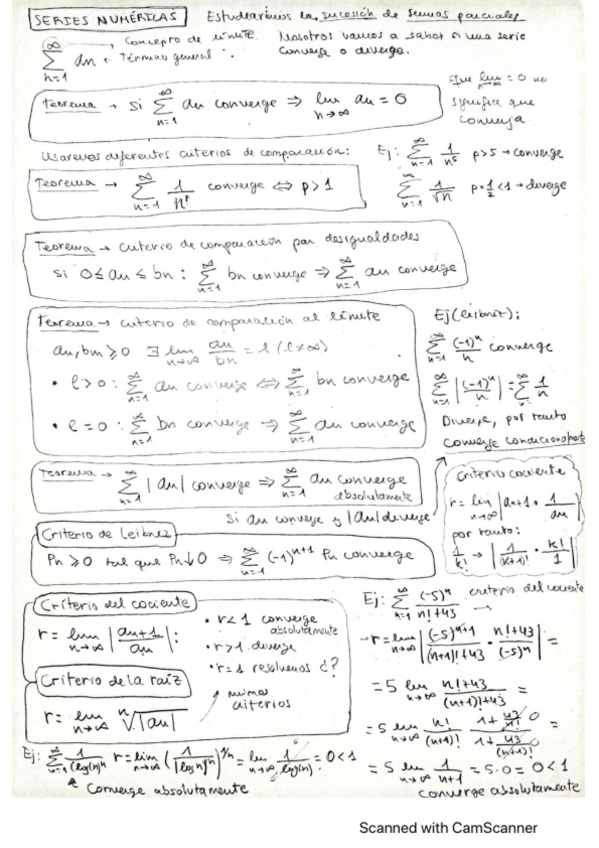 SERIES NUMÉRICAS
Estudiaremos la sucesión de sumas parciales
∞ Σ n=1 an
Concepto de límite.
Término general
Nosotros vamos a saber si una serie
converge o diverge.
Teorema → si ∞ Σ n=1 an converge ⇒ lim n→∞ an = 0
Que lim n→∞ = 0 no
significa que
converja.
Usaremos diferentes criterios de comparación:
Teorema → ∞ Σ n=1 1/n^p converge ⇔ p > 1
Ej: ∞ Σ n=1 1/n^5 p>5 → converge
∞ Σ n=1 1/√n p=1/2<1 → diverge
Teorema → criterio de comparación por desigualdades
si 0 ≤ an ≤ bn : ∞ Σ n=1 bn converge ⇒ ∞ Σ n=1 an converge
Teorema → criterio de comparación al límite
an, bn ≥ 0 ∃ lim n→∞ an/bn = l (l≠∞)
• l > 0 : ∞ Σ n=1 an converge ⇔ ∞ Σ n=1 bn converge
• l = 0 : ∞ Σ n=1 bn converge ⇒ ∞ Σ n=1 an converge
Ej (Leibniz):
∞ Σ n=1 (-1)^n/n converge
∞ Σ n=1 |(-1)^n/n| = ∞ Σ n=1 1/n
Diverge, por tanto
converge condicionalmente
Teorema → ∞ Σ n=1 |an| converge ⇒ ∞ Σ n=1 an converge
absolutamente
si an converge y |an| diverge
Criterio cociente
r = lim n→∞ |an+1 · 1/an|
por tanto:
1/k! → |1/(k+1)! · k!/1|
Criterio de Leibniz
Pn ≥ 0 tal que Pn ↓ 0 ⇒ ∞ Σ n=1 (-1)^n+1 Pn converge
Criterio del cociente
r = lim n→∞ |an+1/an| :
• r<1 converge
absolutamente
• r>1 diverge
• r=1 resolvemos ¿?
Criterio de la raíz
r = lim n→∞ ⁿ√|an|
mismos
criterios
Ej: ∞ Σ n=1 (-5)^n/n!+43 criterio del cociente
→ r = lim n→∞ |(-5)^n+1/(n+1)!+43 · n!+43/(-5)^n| =
= 5 lim n→∞ n!+43/(n+1)!+43 =
= 5 lim n→∞ n!/(n+1)! · 1+43/n!/1+43/(n+1)! =
= 5 lim n→∞ 1/n+1 = 5·0 = 0 < 1
converge absolutamente
Ej: ∞ Σ n=1 1/(log(n))^n r = lim n→∞ (1/|log(n)|^n)^1/n = lim n→∞ 1/log(n) = 0 < 1
Converge absolutamente
Scanned with CamScanner